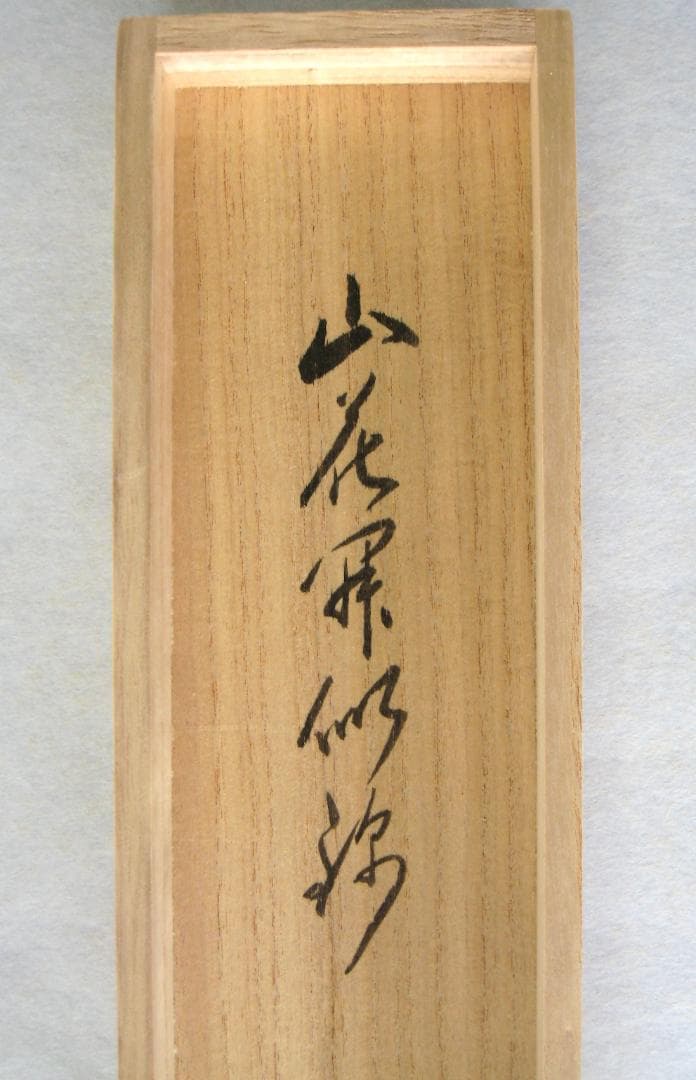 山花開似錦